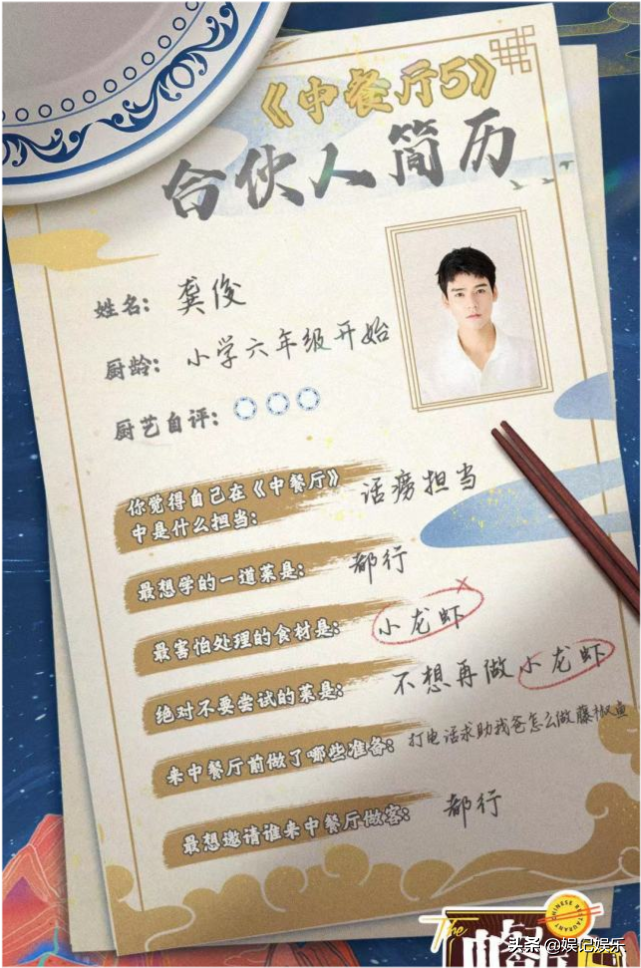 《中餐厅5》
合伙人简历
姓名: 龚俊
厨龄: 小学六年级开始
厨艺自评:
你觉得自己在《中餐厅》
中是什么担当: 话痨担当
最想学的一道菜是: 都行
最害怕处理的食材是: 小龙虾
绝对不要尝试的菜是: 不想再做小龙虾
来中餐厅前做了哪些准备: 打电话求助我爸怎么做藤椒鱼
最想邀请谁来中餐厅做客: 都行
CHINESE RESTAURANT
The
中餐厅
头条 @娱记娱乐